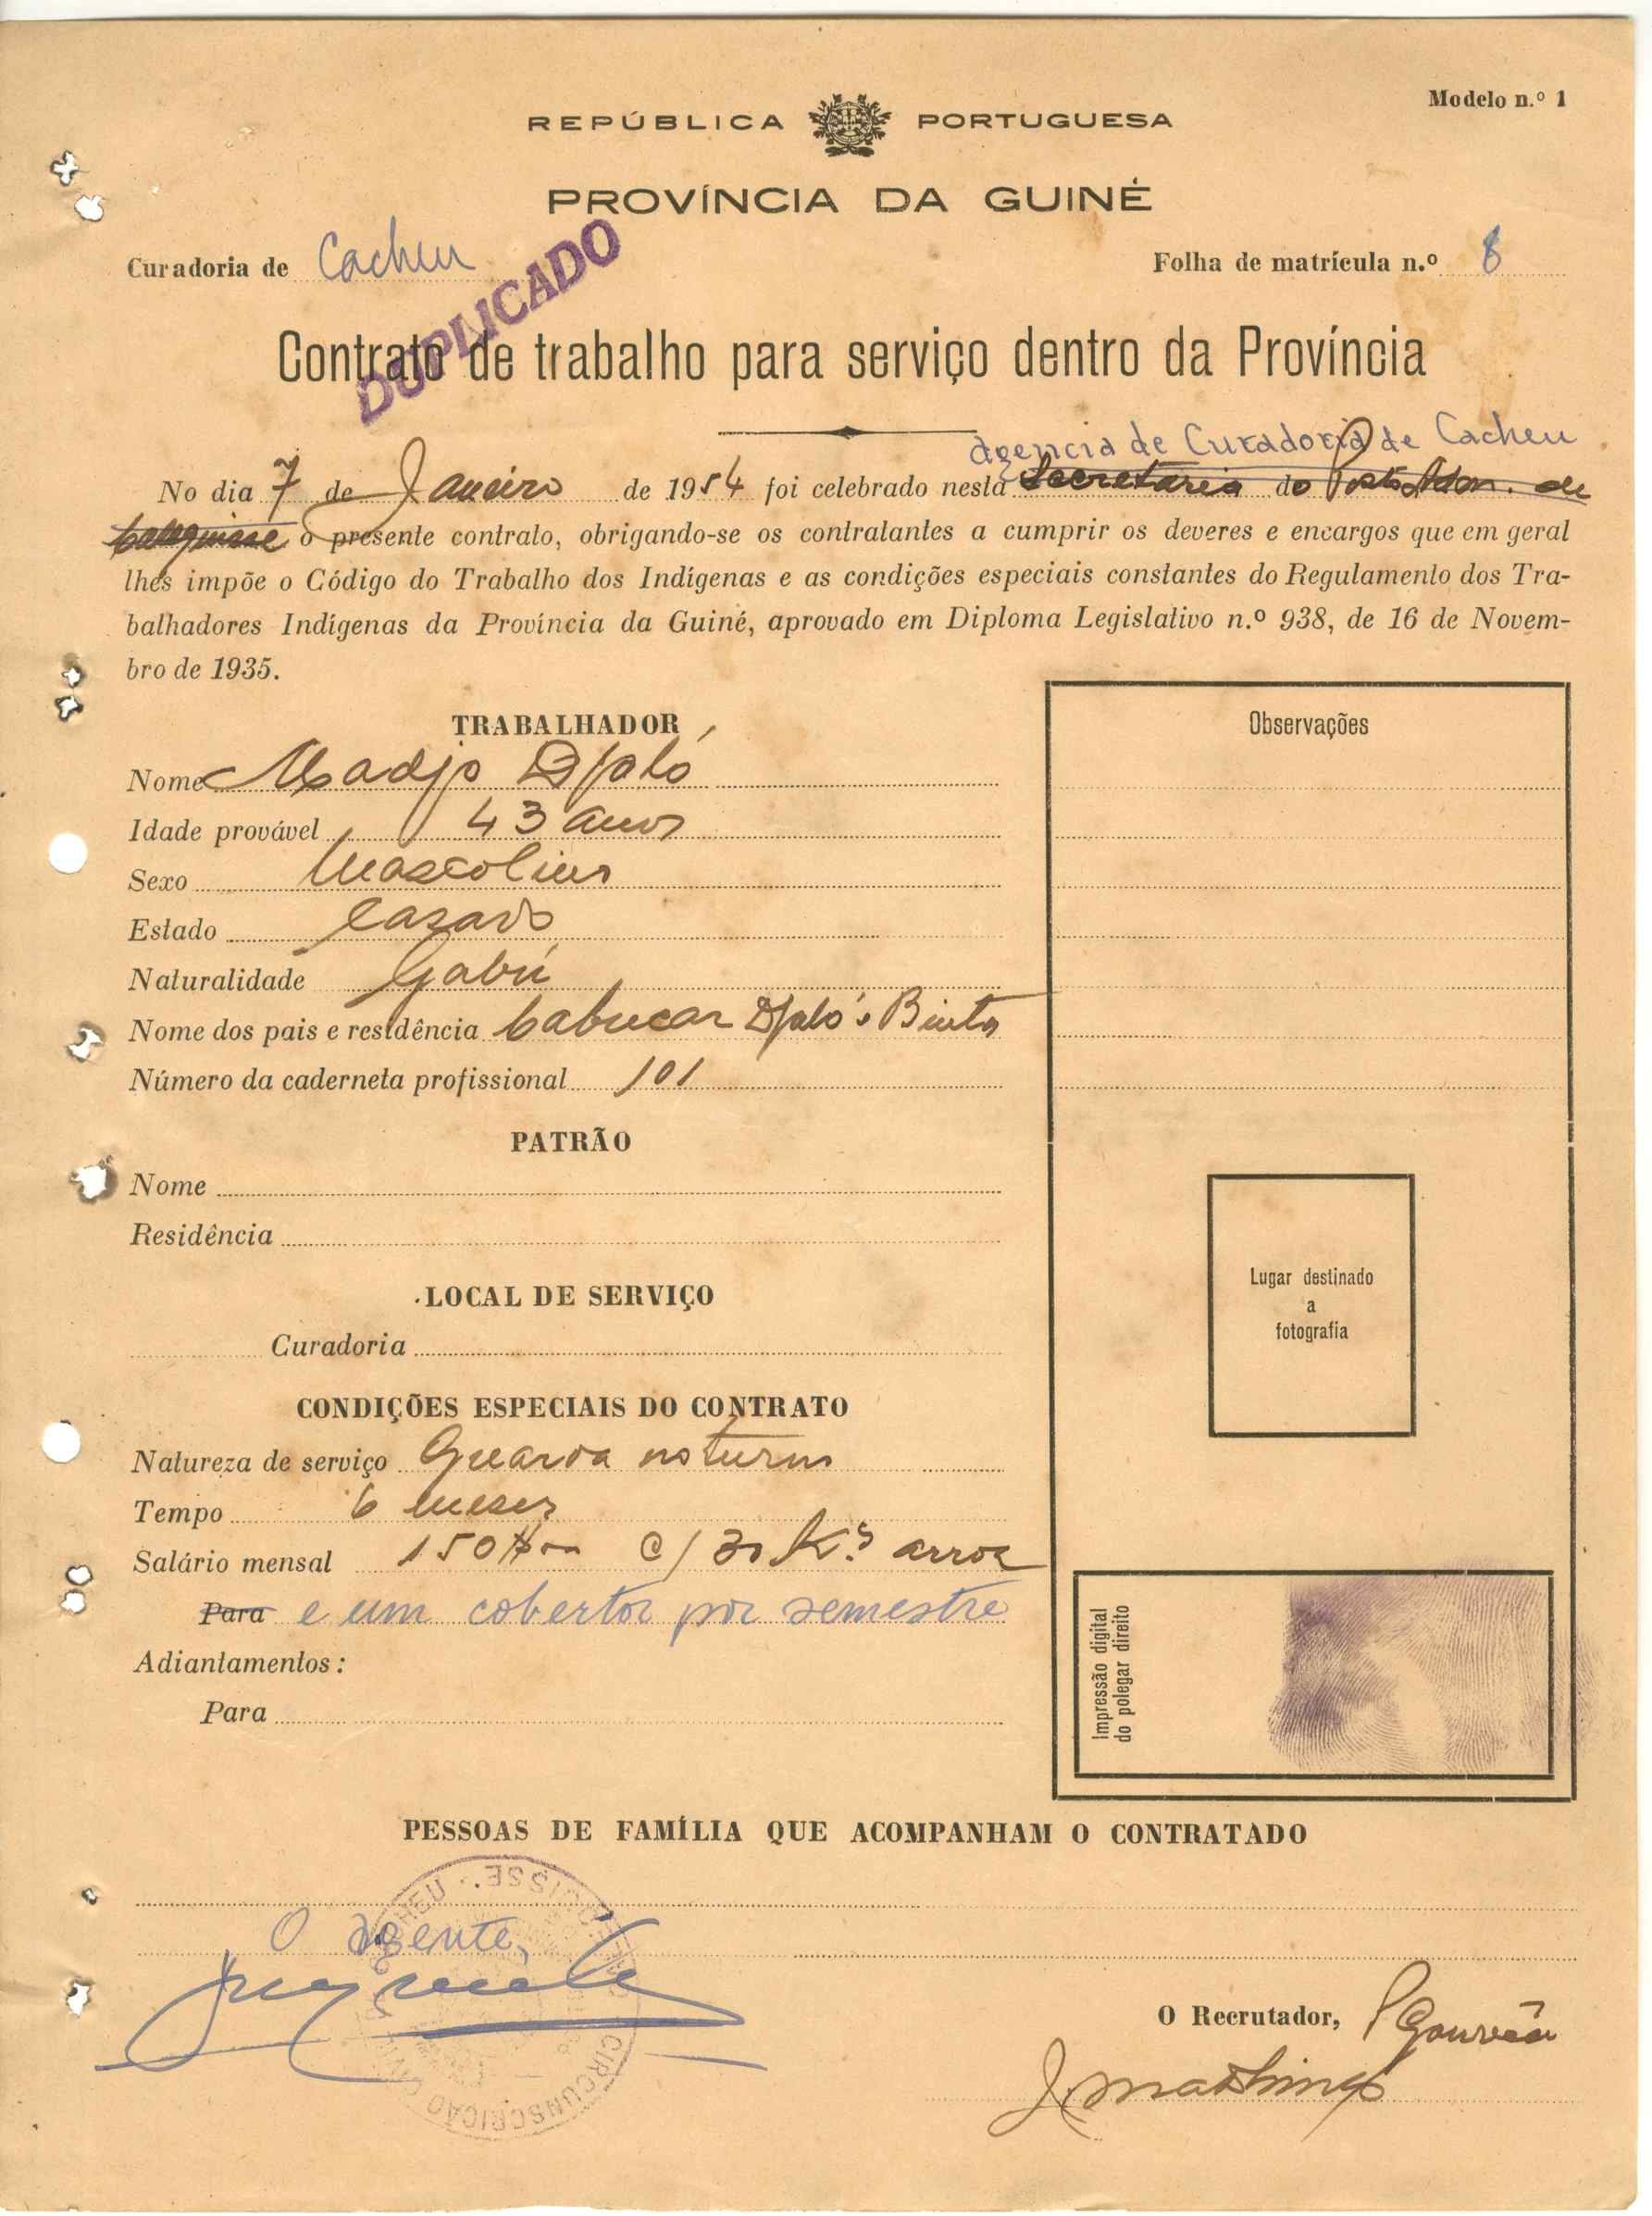 Modelo n.º 1
REPÚBLICA PORTUGUESA
PROVÍNCIA DA GUINÉ
Curadoria de Cacheu
DUPLICADO
Folha de matrícula n.º 8
Contrato de trabalho para serviço dentro da Província
agencia de Curadoria de Cacheu
No dia 7 de Janeiro de 1954 foi celebrado nesta Secretaria do Posto Adm. de
Calequisse o presente contrato, obrigando-se os contratantes a cumprir os deveres e encargos que em geral
lhes impõe o Código do Trabalho dos Indígenas e as condições especiais constantes do Regulamento dos Tra-
balhadores Indígenas da Província da Guiné, aprovado em Diploma Legislativo n.º 938, de 16 de Novem-
bro de 1935.
TRABALHADOR
Nome Madjo Djaló
Idade provável 43 anos
Sexo Mascolino
Estado Casado
Naturalidade Gabú
Nome dos pais e residência Babucar Djaló e Binta
Número da caderneta profissional 101
PATRÃO
Nome
Residência
LOCAL DE SERVIÇO
Curadoria
CONDIÇÕES ESPECIAIS DO CONTRATO
Natureza de serviço Guarda noturno
Tempo 6 meses
Salário mensal 150$00 c/30 K.s arroz
Para e um cobertor por semestre
Adiantamentos:
Para
Observações
Lugar destinado
a
fotografia
Impressão digital
do polegar direito
PESSOAS DE FAMÍLIA QUE ACOMPANHAM O CONTRATADO
O agente,
O Recrutador, P Gouvêa
J. Martins